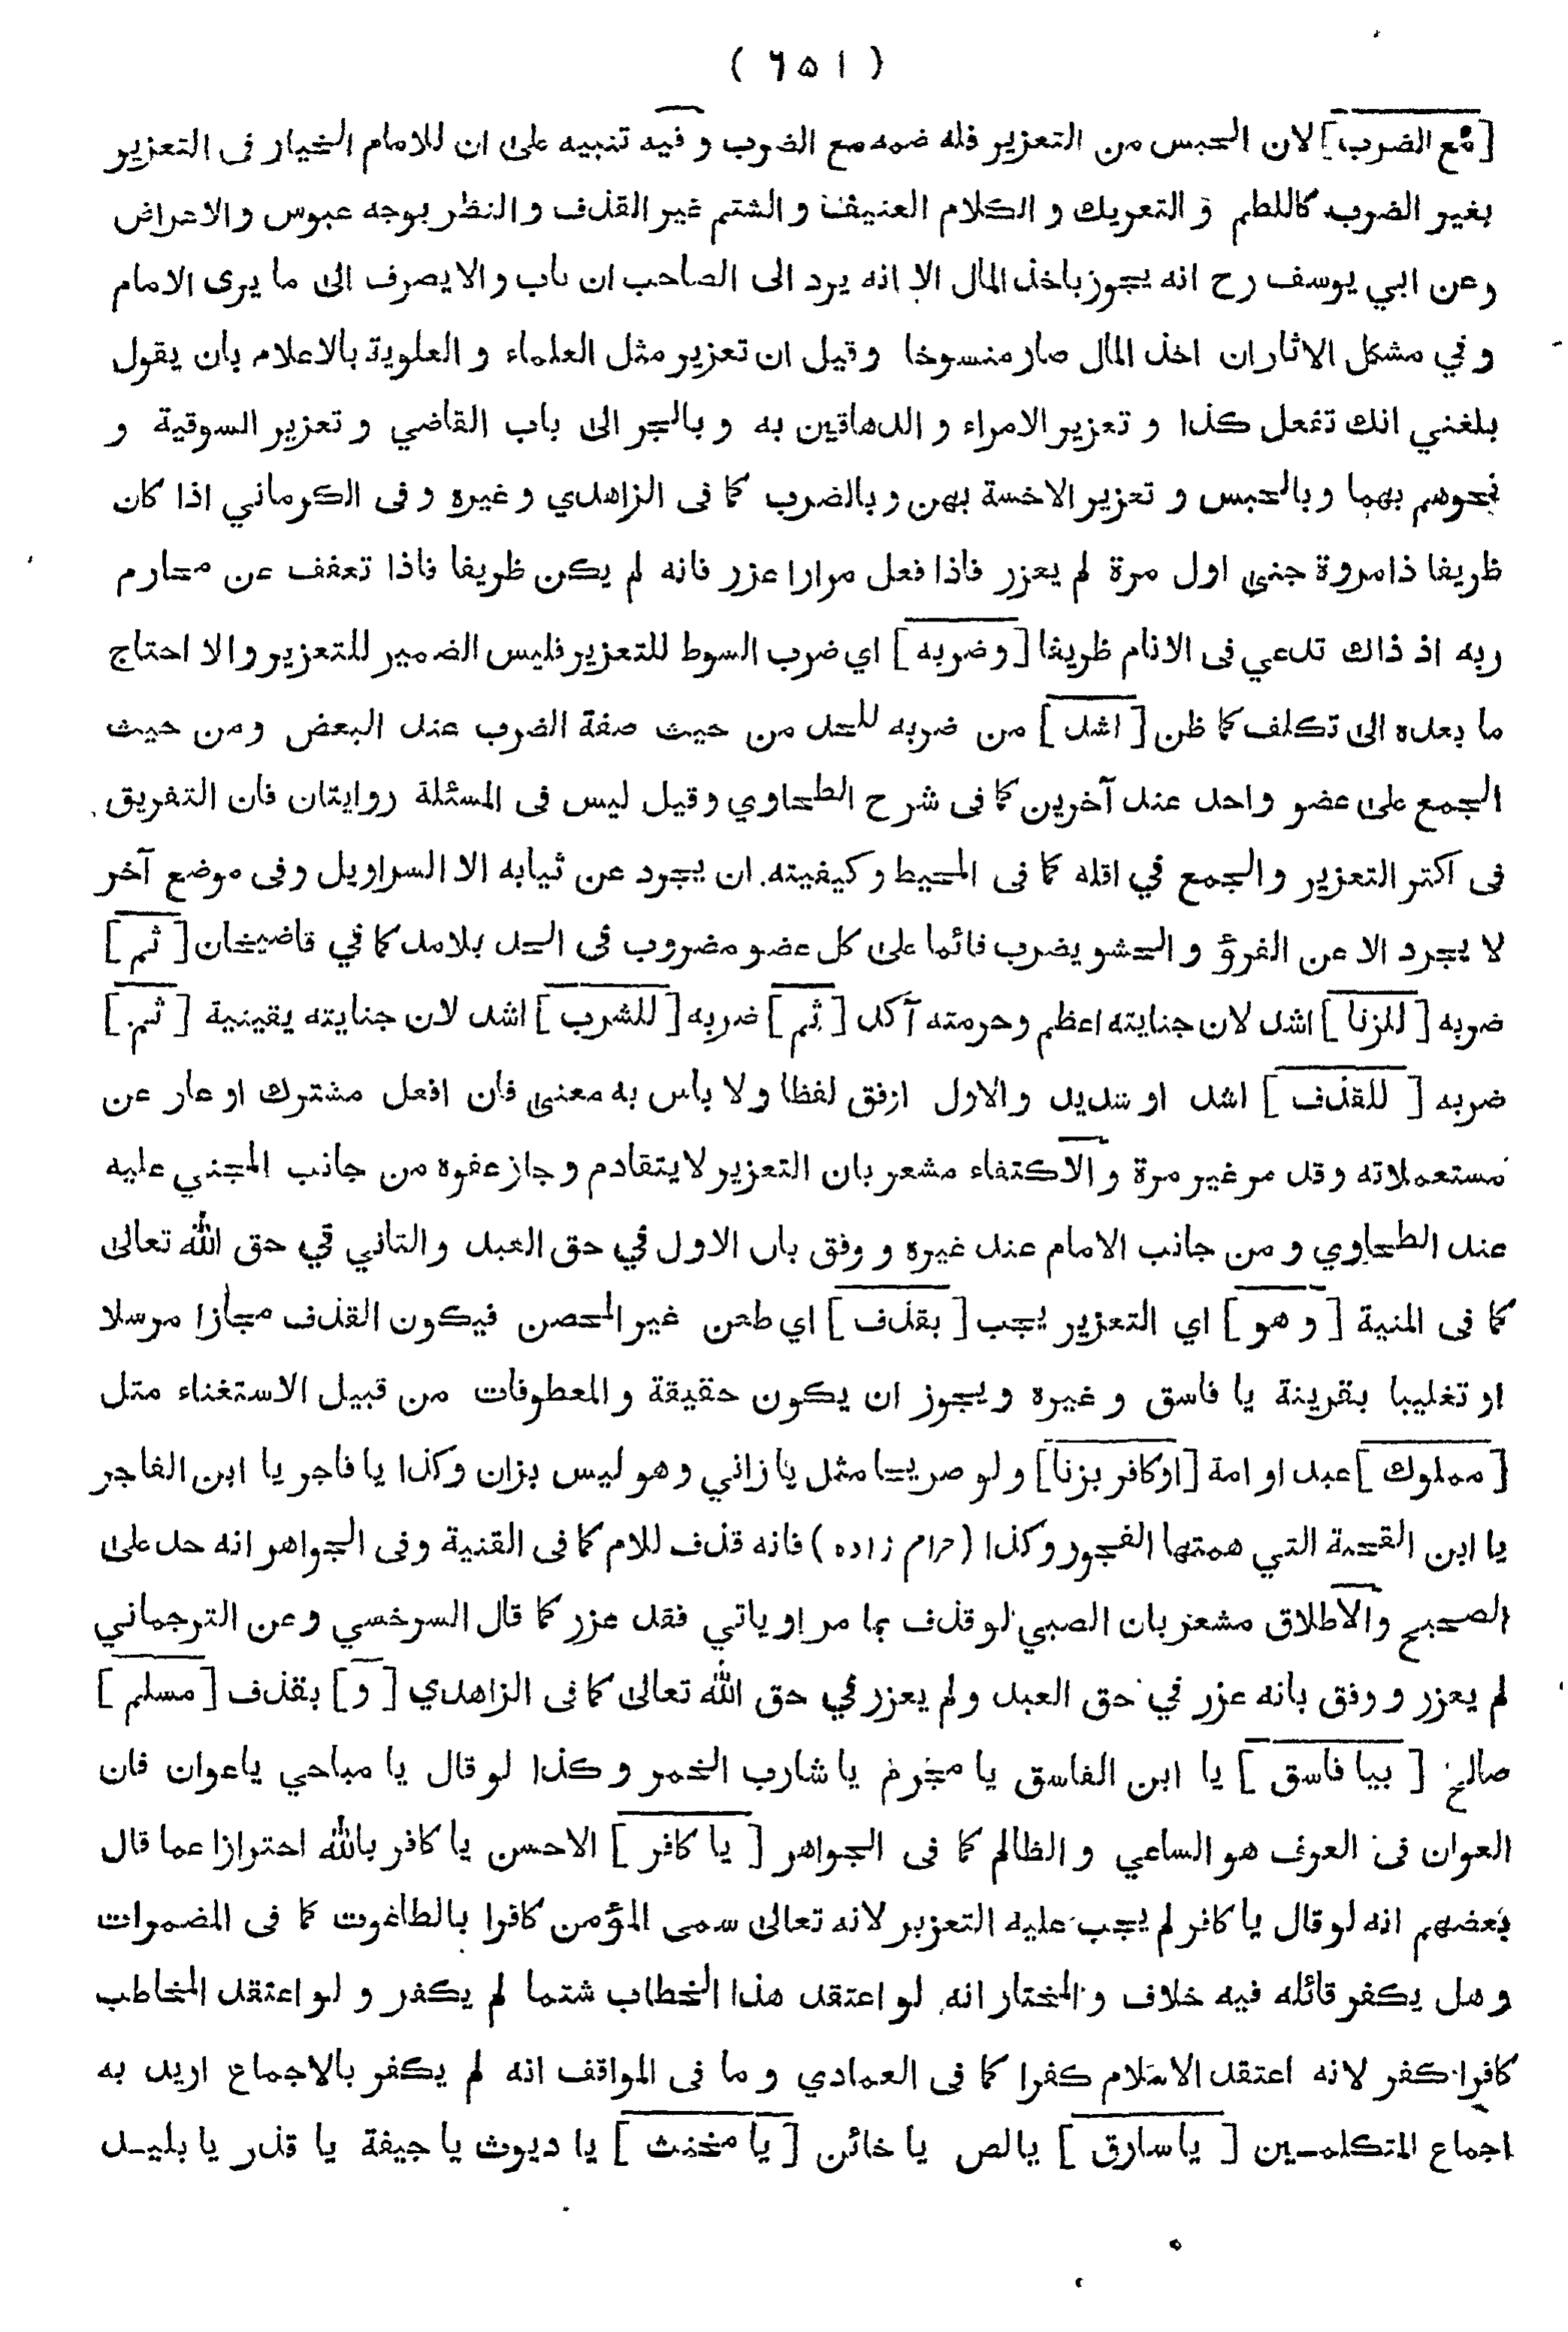 ( ٦٥١ )
[مع الضرب] لان الحبس من التعزير فله ضمه مع الضرب و فيه تنبيه على ان للامام الخيار فى التعزير
بغير الضرب كاللطم و التعريك و الكلام العنيف و الشتم غير القذف و النظر بوجه عبوس والاعراض
وعن ابي يوسف رح انه يجوز باخذ المال الا انه يرد الى الصاحب ان تاب و الا يصرف الى ما يرى الامام
و في مشكل الاثار ان اخذ المال صار منسوخا وقيل ان تعزير مثل العلماء و العلوية بالاعلام بان يقول
بلغني انك تفعل كذا و تعزير الامراء و الدهاقين به و بالجر الى باب القاضي و تعزير السوقية و
نحوهم بهما وبالحبس و تعزير الاخسة بهن و بالضرب كما فى الزاهدي و غيره و فى الكرماني اذا كان
ظريفا ذا مروة جنى اول مرة لم يعزر فاذا فعل مرارا عزر فانه لم يكن ظريفا فاذا تعفف عن محارم
ربه اذ ذاك تدعي فى الانام ظريفا [وضربه] اي ضرب السوط للتعزير فليس الضمير للتعزير والا احتاج
ما بعده الى تكلف كما ظن [اشد] من ضربه للحد من حيث صفة الضرب عند البعض ومن حيث
الجمع على عضو واحد عند آخرين كما فى شرح الطحاوي وقيل ليس فى المسئلة روايتان فان التفريق
فى اكثر التعزير والجمع في اقله كما فى المحيط و كيفيته ان يجرد عن ثيابه الا السراويل وفى موضع آخر
لا يجرد الا عن الفرؤ و الحشو يضرب قائما على كل عضو مضروب فى الحد بلا مد كما في قاضيخان [ثم]
ضربه [للزنا] اشد لان جنايته اعظم وحرمته آكد [ثم] ضربه [للشرب] اشد لان جنايته يقينية [ثم]
ضربه [للقذف] اشد او شديد والاول ارفق لفظا ولا باس به معنى فان افعل مشترك او عار عن
مستعملاته وقد مر غير مرة و الاكتفاء مشعر بان التعزير لا يتقادم و جاز عفوه من جانب المجني عليه
عند الطحاوي و من جانب الامام عند غيره و وفق بان الاول في حق العبد والثاني في حق الله تعالى
كما فى المنية [و هو] اي التعزير يجب [بقذف] اي طعن غير المحصن فيكون القذف مجازا مرسلا
او تغليبا بقرينة يا فاسق و غيره ويجوز ان يكون حقيقة و المعطوفات من قبيل الاستغناء مثل
[مملوك] عبد او امة [او كافر بزنا] و لو صريحا مثل يا زاني وهو ليس بزان وكذا يا فاجر يا ابن الفاجر
يا ابن القحبة التي همتها الفجور وكذا (حرام زاده) فانه قذف للام كما فى القنية وفى الجواهر انه حد على
الصحيح والاطلاق مشعر بان الصبي لو قذف بما مر او ياتي فقد عزر كما قال السرخسي وعن الترجماني
لم يعزر و وفق بانه عزر في حق العبد ولم يعزر في حق الله تعالى كما فى الزاهدي [و] بقذف [مسلم]
صالح [بيا فاسق] يا ابن الفاسق يا مجرم يا شارب الخمر و كذا لو قال يا مباحي يا عوان فان
العوان فى العرف هو الساعي و الظالم كما فى الجواهر [يا كافر] الاحسن يا كافر بالله احترازا عما قال
بعضهم انه لو قال يا كافر لم يجب عليه التعزير لانه تعالى سمى المؤمن كافرا بالطاغوت كما فى المضمرات
وهل يكفر قائله فيه خلاف و المختار انه لو اعتقد هذا الخطاب شتما لم يكفر و لو اعتقد المخاطب
كافرا كفر لانه اعتقد الاسلام كفرا كما فى العمادي و ما فى المواقف انه لم يكفر بالاجماع اريد به
اجماع المتكلمين [يا سارق] يا لص يا خائن [يا مخنث] يا ديوث يا جيفة يا قذر يا بليد